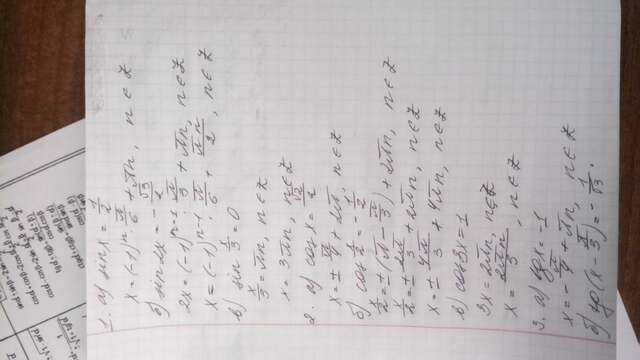 1. а) sin x = 1/2
x = (-1)^n · π/6 + πn, n ∈ Z
б) sin 2x = -√3/2
2x = (-1)^{n-1} · π/3 + πn, n ∈ Z
x = (-1)^{n-1} · π/6 + πn/2, n ∈ Z
в) sin x/3 = 0
x/3 = πn, n ∈ Z
x = 3πn, n ∈ Z
2. а) cos x = √2/2
x = ± π/4 + 2πn, n ∈ Z
б) cos x/2 = -1/2
x/2 = ± (π - π/3) + 2πn, n ∈ Z
x/2 = ± 2π/3 + 2πn, n ∈ Z
x = ± 4π/3 + 4πn, n ∈ Z
в) cos 3x = 1
3x = 2πn, n ∈ Z
x = 2πn/3, n ∈ Z
3. а) tg x = -1
x = -π/4 + πn, n ∈ Z